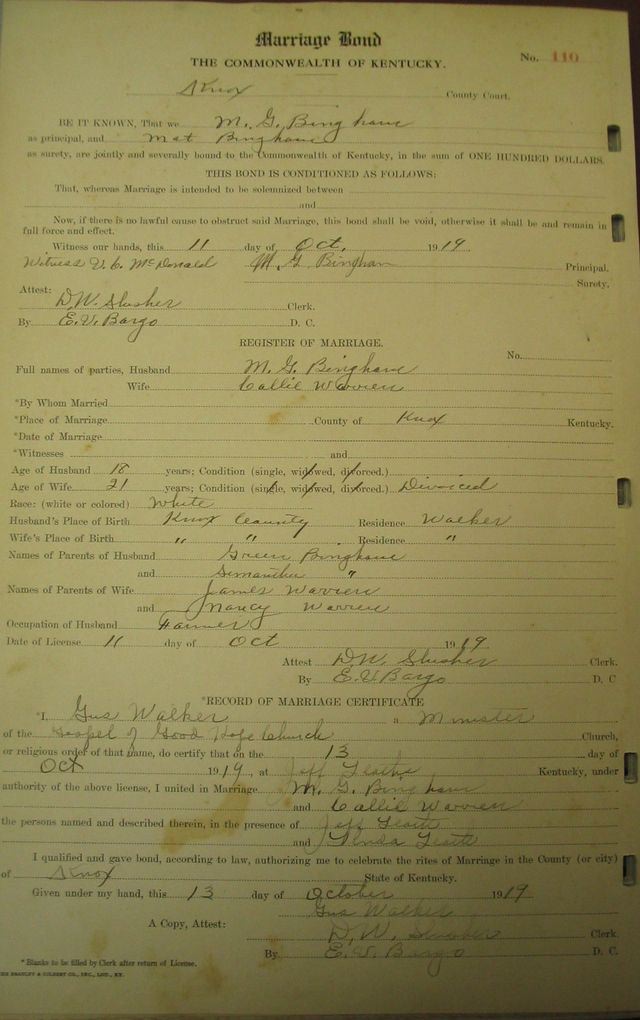 Marriage Bond
THE COMMONWEALTH OF KENTUCKY.
No. 110
Knox County Court.
BE IT KNOWN, That we M. G. Bingham
as principal, and Mat Bingham
as surety, are jointly and severally bound to the Commonwealth of Kentucky, in the sum of ONE HUNDRED DOLLARS.
THIS BOND IS CONDITIONED AS FOLLOWS:
That, whereas Marriage is intended to be solemnized between
and
Now, if there is no lawful cause to obstruct said Marriage, this bond shall be void, otherwise it shall be and remain in
full force and effect.
Witness our hands, this 11 day of Oct. 1919
Witness V. C. McDonald M. G. Bingham Principal.
Surety.
Attest:
D. W. Slusher Clerk.
By E. V. Bargo D. C.
REGISTER OF MARRIAGE.
No.
Full names of parties, Husband M. G. Bingham
Wife Callie Warren
*By Whom Married
*Place of Marriage County of Knox Kentucky.
*Date of Marriage
*Witnesses and
Age of Husband 18 years; Condition (single, widowed, divorced.)
Age of Wife 21 years; Condition (single, widowed, divorced.) Divorced
Race: (white or colored) White
Husband's Place of Birth Knox County Residence Walker
Wife's Place of Birth " " Residence "
Names of Parents of Husband Green Bingham
and Simanthia "
Names of Parents of Wife James Warren
and Nancy Warren
Occupation of Husband Farmer
Date of License 11 day of Oct 1919
Attest D. W. Slusher Clerk.
By E. V. Bargo D. C
*RECORD OF MARRIAGE CERTIFICATE
*I, Gus Walker a Minister
of the Gospel of Good Hope Church Church,
or religious order of that name, do certify that on the 13 day of
Oct 1919, at Jeff Kentucky, under
authority of the above license, I united in Marriage M. G. Bingham
and Callie Warren
the persons named and described therein, in the presence of Jeff
and
I qualified and gave bond, according to law, authorizing me to celebrate the rites of Marriage in the County (or city)
of Knox State of Kentucky.
Given under my hand, this 13 day of October 1919
Gus Walker
A Copy, Attest: D. W. Slusher Clerk.
By: E. V. Bargo D. C.
*Blanks to be filled by Clerk after return of License.
BRADLEY & GILBERT CO., INC., LOU., KY.